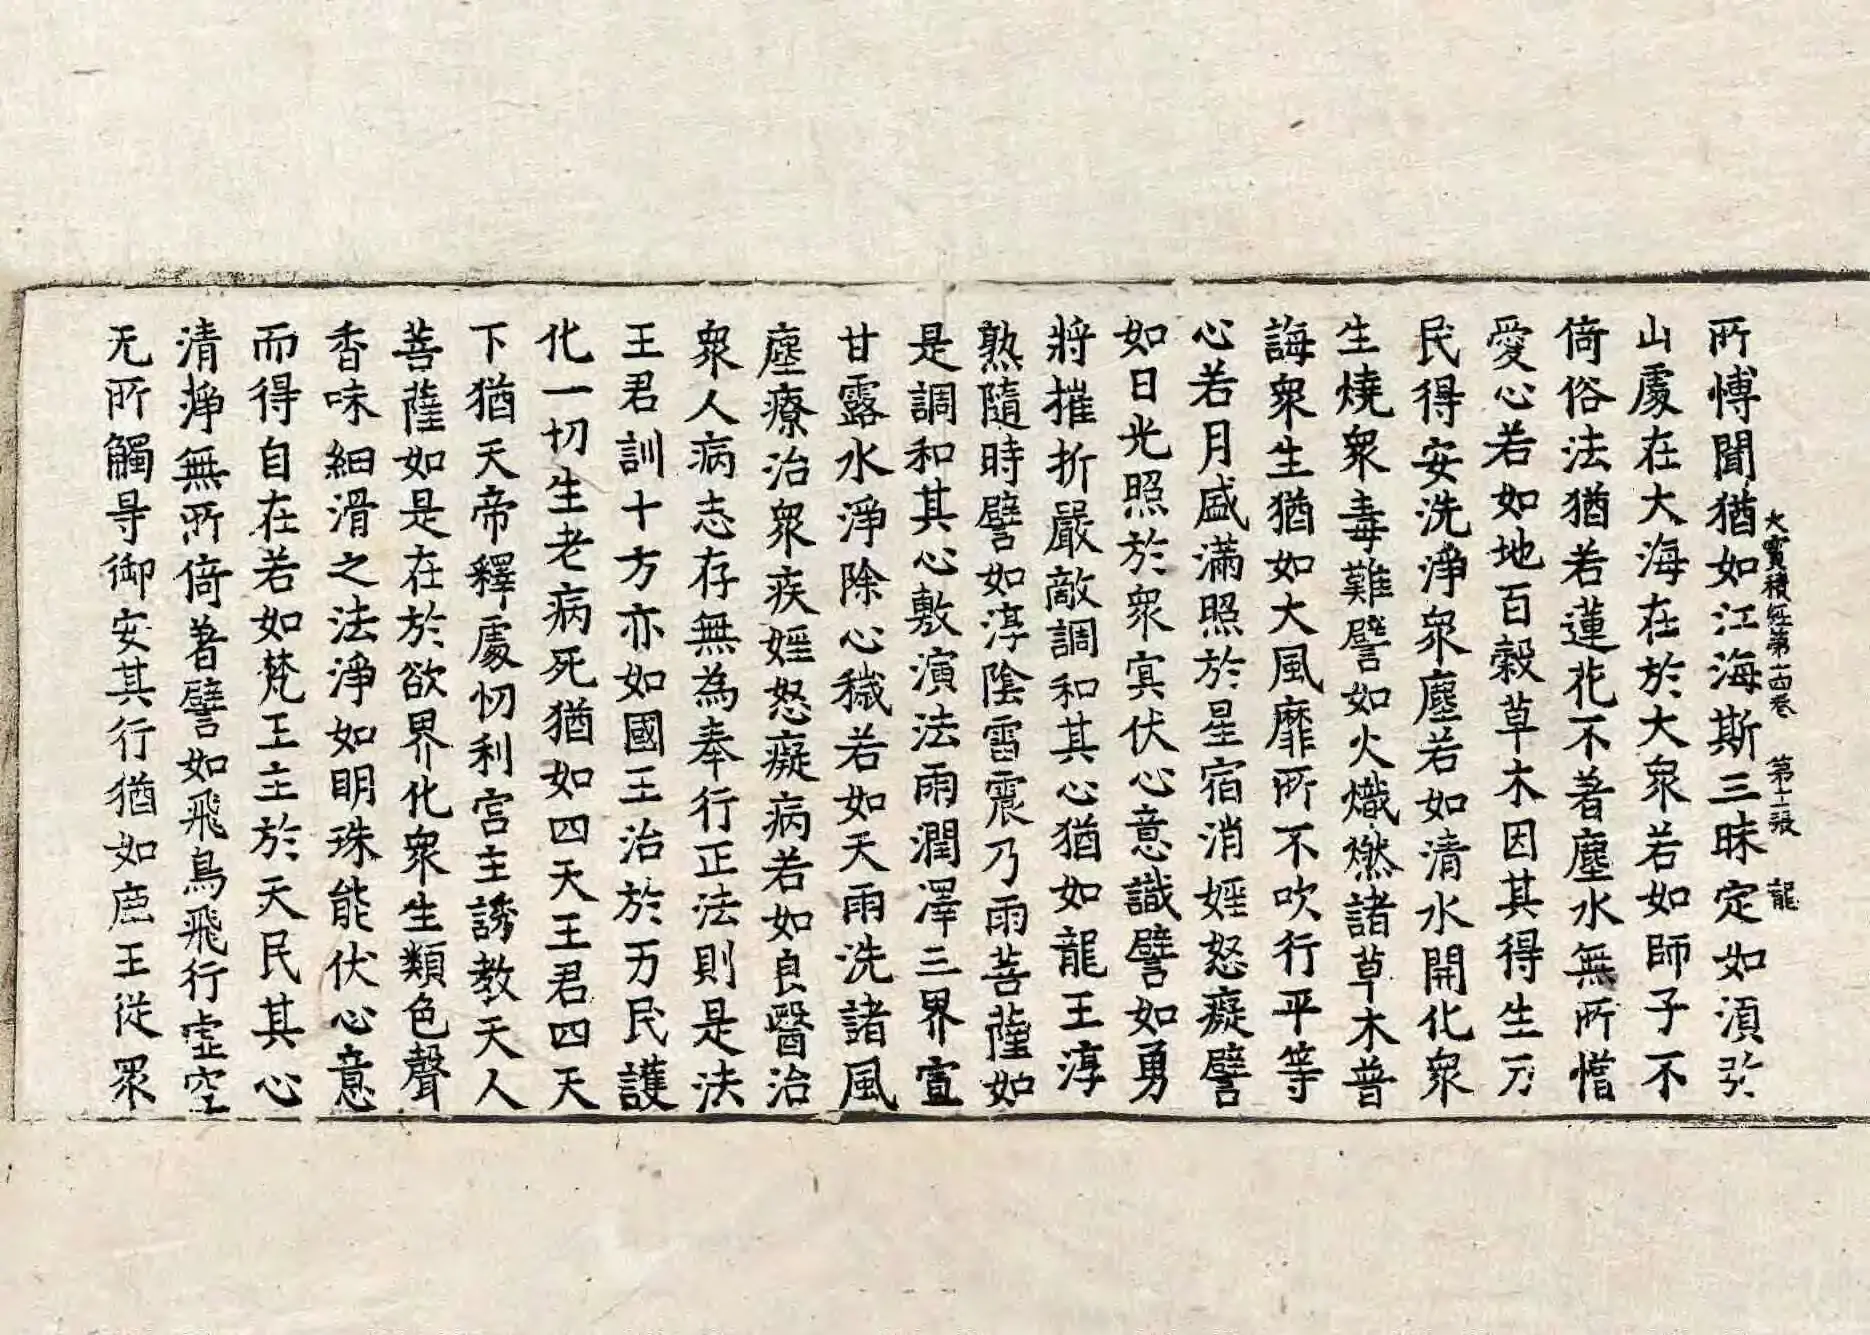 所愽聞猶如江海斯三昧定如湏弥
大寶積經第十四卷 第十二張 龍
山處在大海在於大衆若如師子不
倚俗法猶若蓮花不著塵水無所憎
愛心若如地百穀草木因其得生万
民得安洗淨衆塵若如清水開化衆
生燒衆毒難譬如火熾燃諸草木普
誨衆生猶如大風靡所不吹行平等
心若月盛滿照於星宿消婬怒癡譬
如日光照於衆㝠伏心意識譬如勇
將摧折嚴敵調和其心猶如龍王淳
熟隨時譬如淳陰雷震乃雨菩薩如
是調和其心敷演法雨潤澤三界宣
甘露水淨除心穢若如天雨洗諸風
塵療治衆疾婬怒癡病若如良醫治
衆人病志存無為奉行正法則是法
王君訓十方亦如國王治於万民護
化一切生老病死猶如四天王君四天
下猶天帝釋處忉利宮主誘教天人
菩薩如是在於欲界化衆生類色聲
香味細滑之法淨如明珠能伏心意
而得自在若如梵王主於天民其心
清淨無所倚著譬如飛鳥飛行虛空
无所觸㝵御安其行猶如鹿王從眾